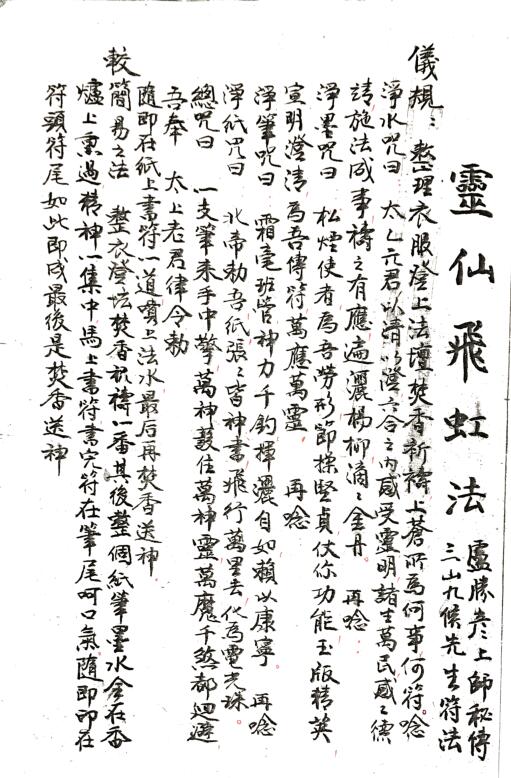 靈仙飛虹法
盧勝彥上師秘傳
三山九候先生符法
儀規：整理衣服登上法壇焚香祈禱上蒼所為何事何符。唸
淨水咒曰　太乙元君以清以澄六合之內感受靈明諸生萬民感々德
請施法成事禱之有應遍灑楊柳滴々金丹　再唸
淨墨咒曰　松煙使者為吾勞形節操堅貞仗你功能玉版精英
宣明澄清為吾傳符萬應萬靈　再唸
淨筆咒曰　霜毫班管神力千鈞揮灑自如賴以康寧　再唸
淨紙咒曰　北帝勅吾紙張々皆神書飛行萬里去化為電光珠。
總咒曰　一支筆來手中擎萬神護住萬神靈萬魔千煞都迴避
吾奉　太上老君律令勅
隨即在紙上書符一道噴上法水最后再焚香送神
較簡易之法　整衣登坛焚香祈禱一番其後整個紙筆墨水全在香
爐上熏過精神一集中馬上書符書完符在筆尾呵口氣隨即印在
符頭符尾如此即成最後是焚香送神